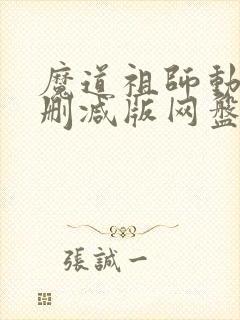 魔道祖師動
刪減版网盤
張誠一